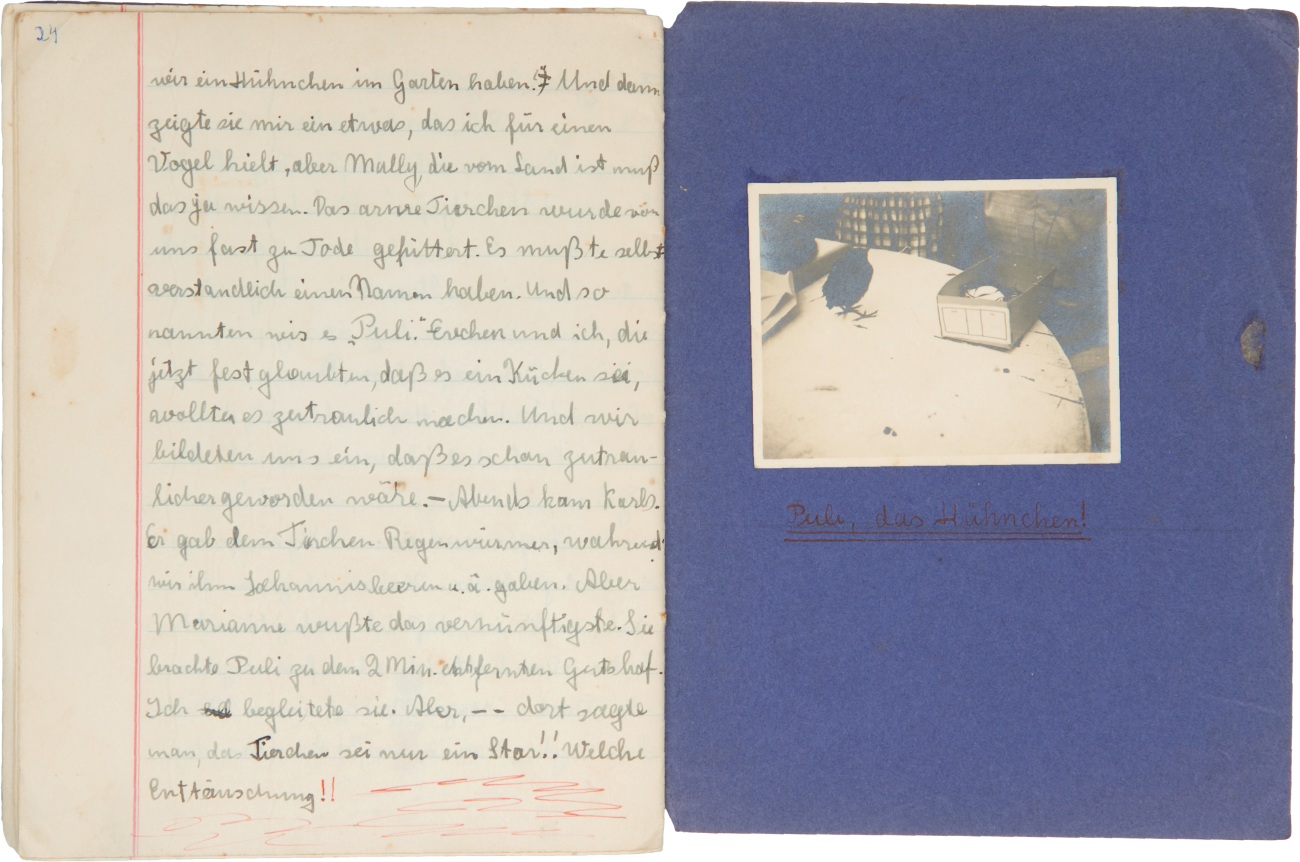 24
wir ein Hühnchen im Garten haben." Und dann
zeigte sie mir ein etwas, das ich für einen
Vogel hielt, aber Mally, die vom Land ist muß
das ja wissen. Das arme Tierchen wurde von
uns fast zu Tode gefüttert. Es mußte selbst
verständlich einen Namen haben. Und so
nannten wir es „Puli." Evchen und ich, die
jetzt fest glaubten, daß es ein Kücken sei,
wollten es zutraulich machen. Und wir
bildeten uns ein, daß es schon zutrau-
licher geworden wäre. – Abends kam Karls.
Er gab dem Tierchen Regenwürmer, während
wir ihm Johannisbeeren u. ä. gaben. Aber
Marianne wußte das vernünftigste. Sie
brachte Puli zu dem 2 Min. entfernten Gutshof.
Ich begleitete sie. Aber, –– dort sagte
man, das Tierchen sei nur ein Star!! Welche
Enttäuschung!!
Puli, das Hühnchen!